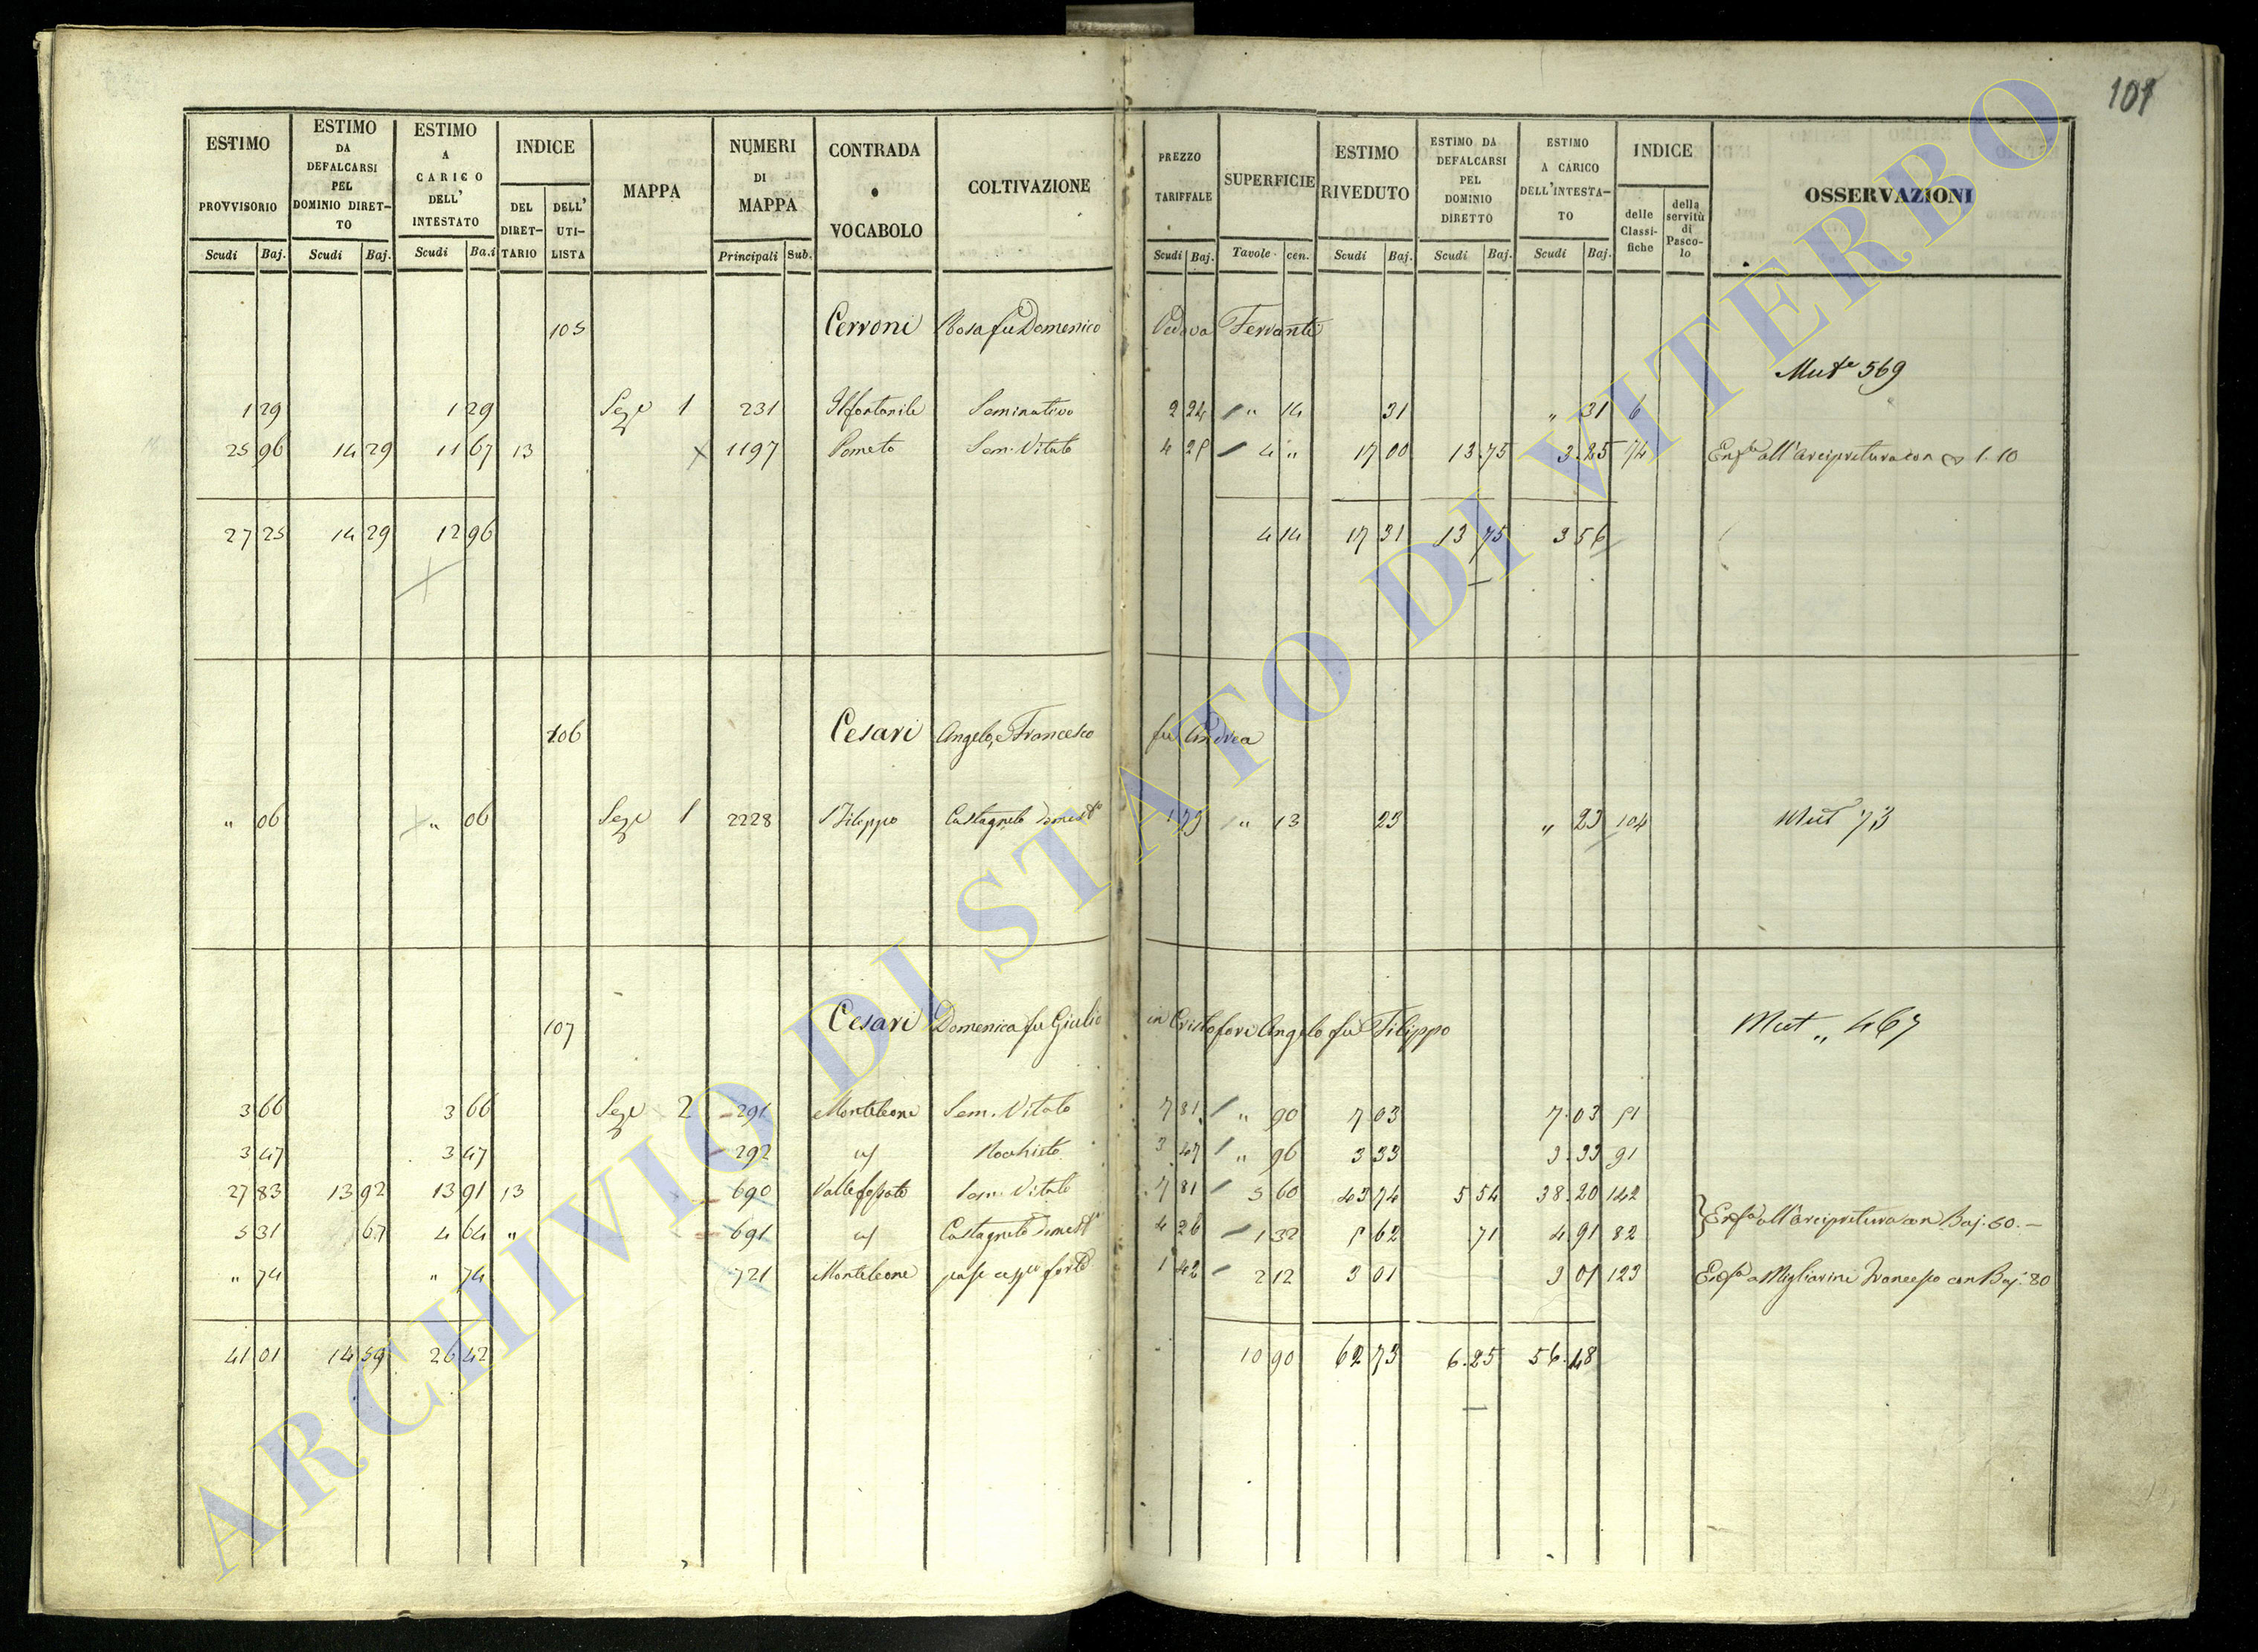 101
ESTIMO PROVVISORIO
ESTIMO DA DEFALCARSI PEL DOMINIO DIRET-TO
ESTIMO A CARICO DELL' INTESTATO
INDICE
DEL DIRET-TARIO
DELL' UTI-LISTA
MAPPA
NUMERI DI MAPPA
CONTRADA o VOCABOLO
COLTIVAZIONE
PREZZO TARIFFALE
SUPERFICIE
ESTIMO RIVEDUTO
ESTIMO DA DEFALCARSI PEL DOMINIO DIRETTO
ESTIMO A CARICO DELL'INTESTA-TO
INDICE
delle Classi-fiche
della servitù di Pasco-lo
OSSERVAZIONI
Scudi Baj. Scudi Baj. Scudi Baj. Principali Sub. Scudi Baj. Tavole cen. Scudi Baj. Scudi Baj. Scudi Baj.
105 Cerroni Rosa fu Domenico Vedova Ferranti
Mut.e 569
1 29 1 29 Sez.e 1 231 Il fontanile Seminativo 2 24 " 14 31 " 31 6
25 96 14 29 11 67 13 1197 Pometo Sem. Vitato 4 25 4 " 17 00 13.75 3.25 74 Enf.a all'Arcipretura con 1.10
27 25 14 29 12 96 4 14 17 31 13 75 3 56
106 Cesari Angelo, e Francesco fu Andrea
" 06 " 06 Sez.e 1 2228 S Filippo Castagneto domest.o 1 79 " 13 23 " 23 104 Mut 73
107 Cesari Domenica fu Giulio in Cristofori Angelo fu Filippo
Mut " 467
3 66 3 66 Sez.e 2 291 Monteleone Sem. Vitato 7 81 " 90 7 03 7.03 51
3 47 3 47 292 id Rocchieto 3 47 " 96 3 33 3.33 91
27 83 13 92 13 91 13 690 Sem. Vitato 7 81 5 60 43 74 5 54 38.20 142
5 31 67 4 64 " 691 id Castagneto domest.o 4 26 1 32 5 62 71 4 91 82 Enf.a all'Arcipretura con Baj. 60.—
" 74 " 74 721 Monteleone forte 1 42 2 12 3 01 3 01 123 Enf.a a Migliarini Francesco con Baj. 80
41 01 14 59 26 42 10 90 62 73 6.25 56.48
ARCHIVIO DI STATO DI VITERBO